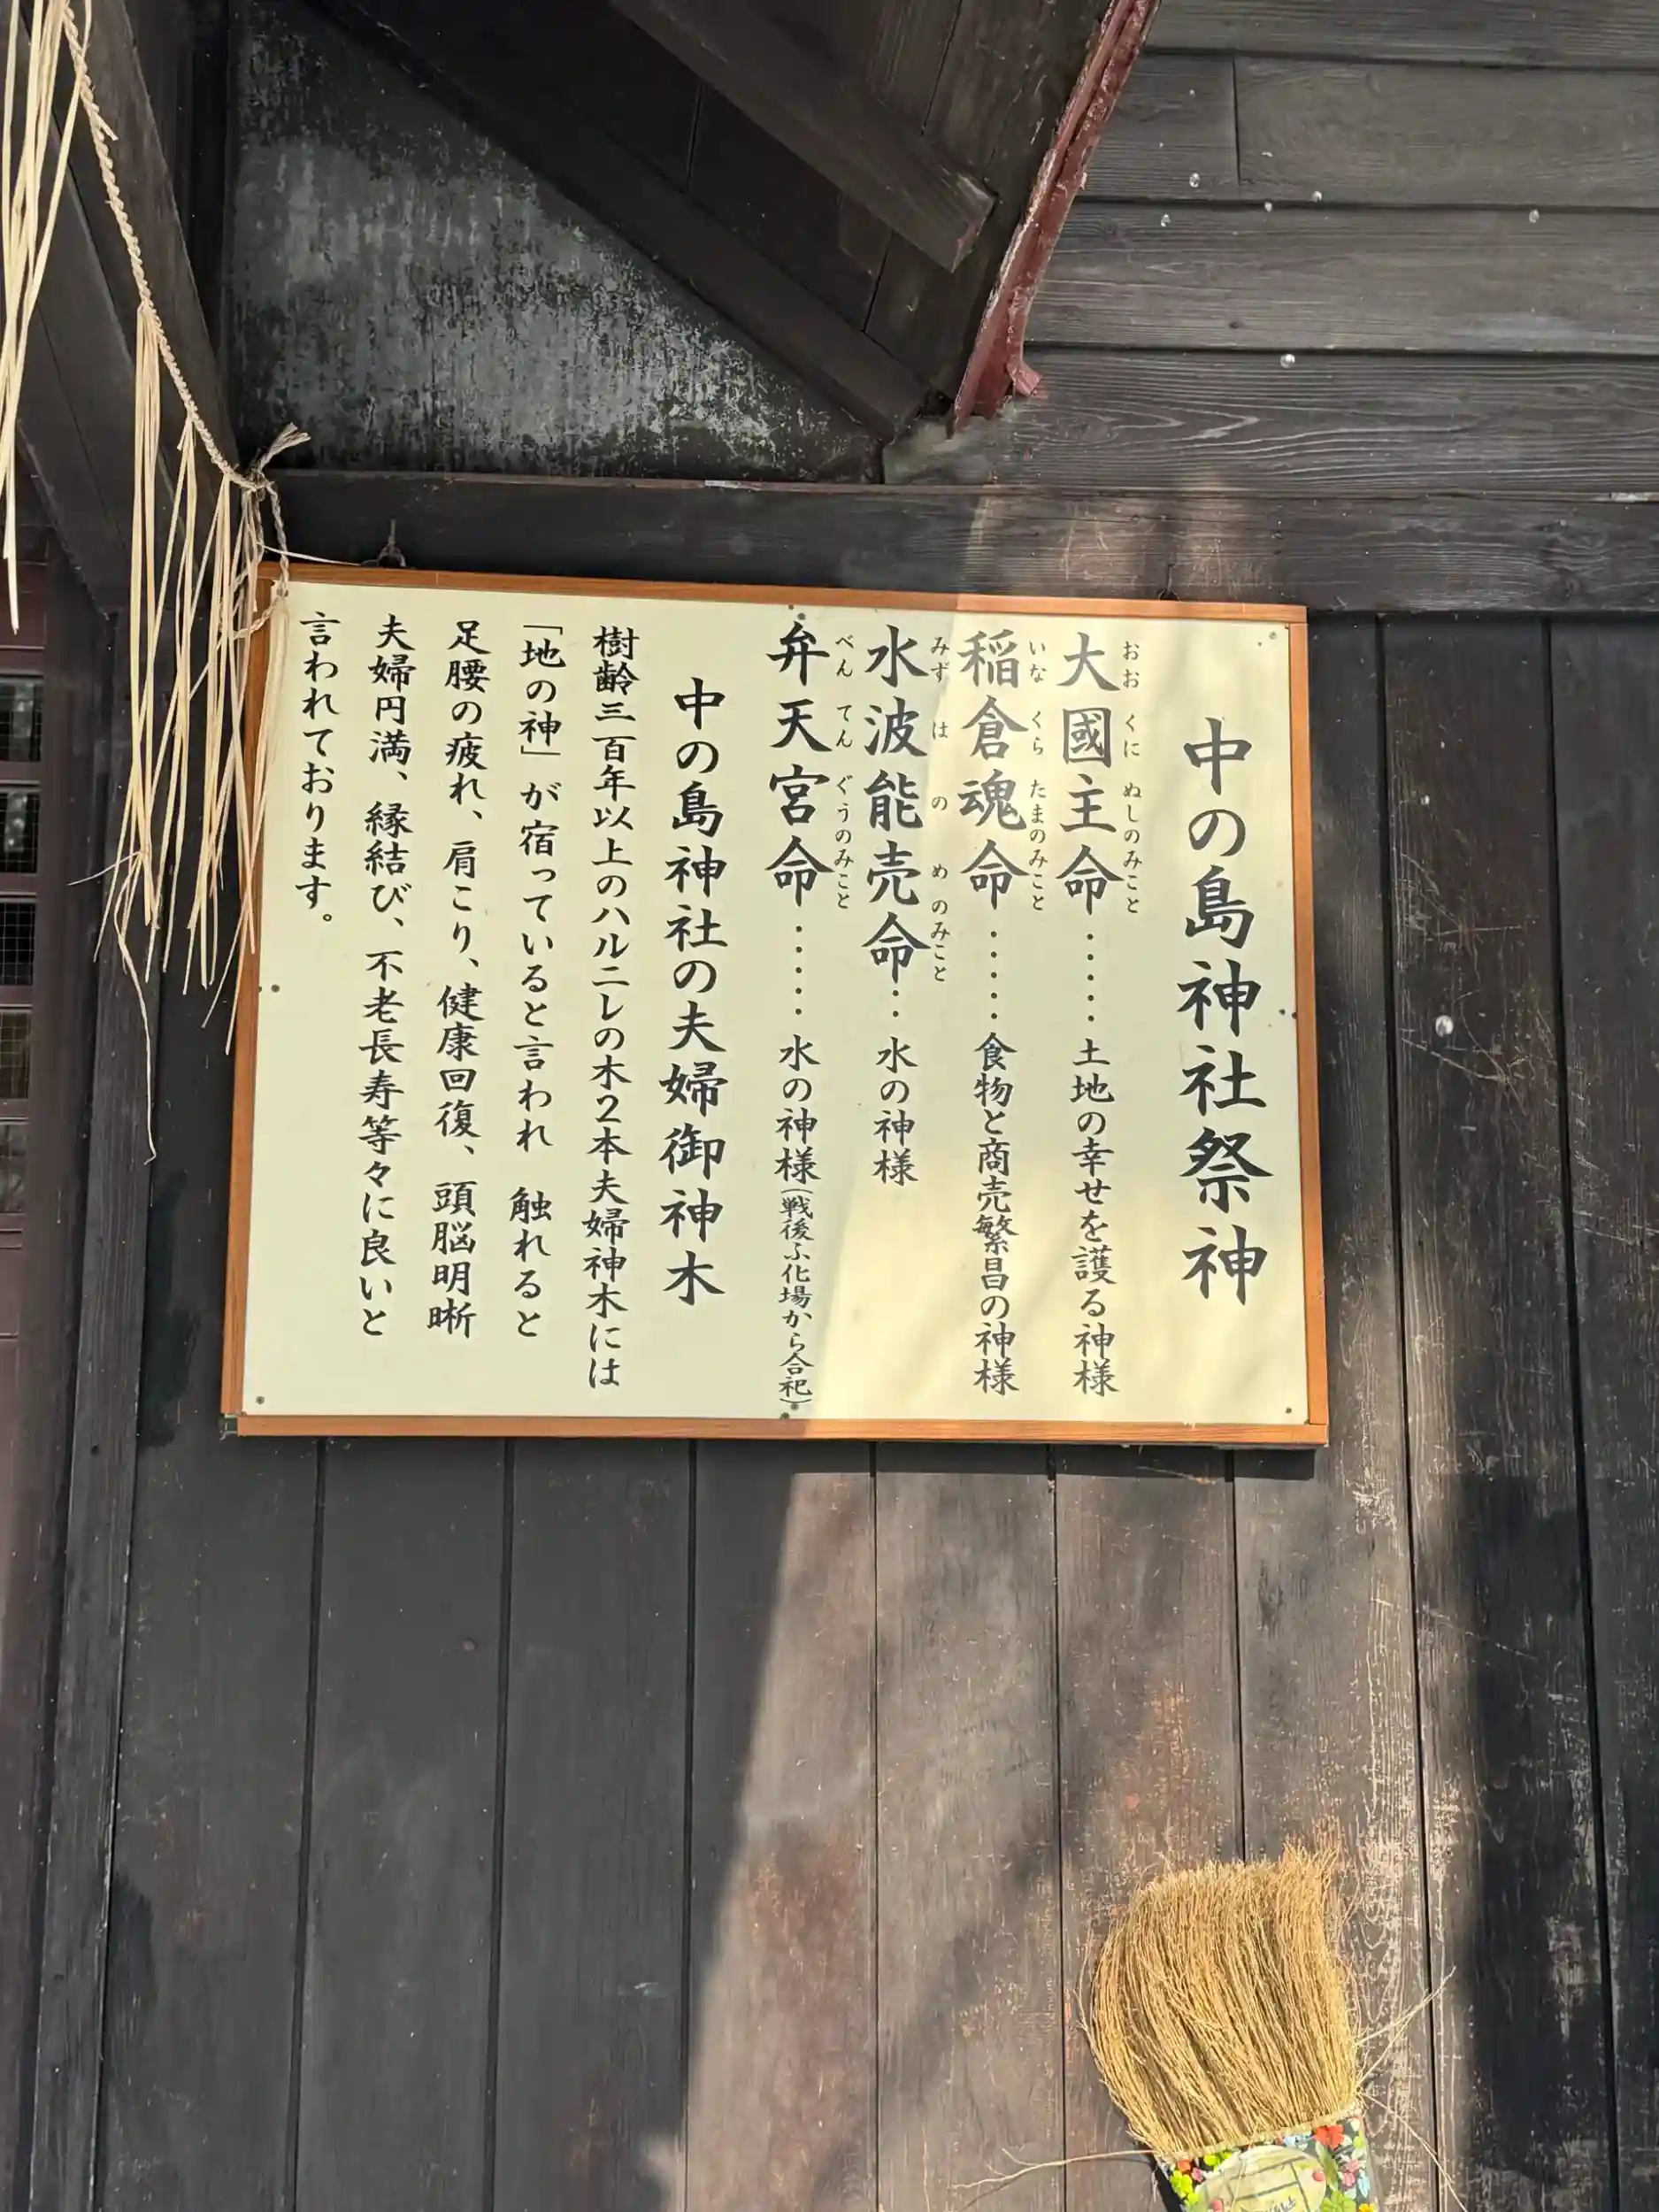 中の島神社祭神
大國主命・・・・・土地の幸せを護る神様
おお くに ぬしのみこと
稲倉魂命・・・・・食物と商売繁昌の神様
いな くら たまのみこと
水波能売命・・水の神様
みず は の め のみこと
弁天宮命・・・・・水の神様(戦後ふ化場から合祀)
べん てん ぐうのみこと
中の島神社の夫婦御神木
樹齢三百年以上のハルニレの木2本夫婦神木には
「地の神」が宿っていると言われ 触れると
足腰の疲れ、肩こり、健康回復、頭脳明晰
夫婦円満、縁結び、不老長寿等々に良いと
言われております。